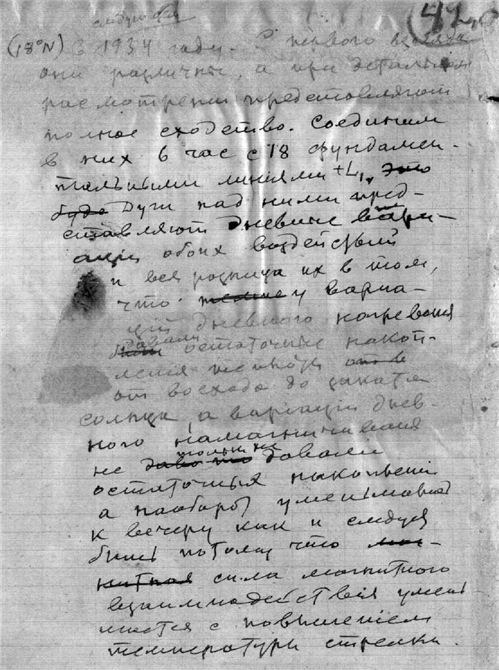 42
(18°N) В 1934 году. С первого взгляда
они различны, а при детальном
рассмотрении представляют
полное сходство. Соединим
в них 6 час с 18 фундамен-
тальными линиями +L, это
Дуги над ними пред-
ставляют дневные вари-
ации обоих воздействий
и вся разница их в том,
что у вариа-
ций дневного нагревания
давали остаточные накоп-
ления
от восхода до заката
солнца, а вариации днев-
ного намагничивания
не только не давали
остаточных накоплений
а наоборот уменьшались
к вечеру как и следует
потому что маг-
нитная сила магнитного
взаимнодействия умень
шается с повышением
температуры стрелки.